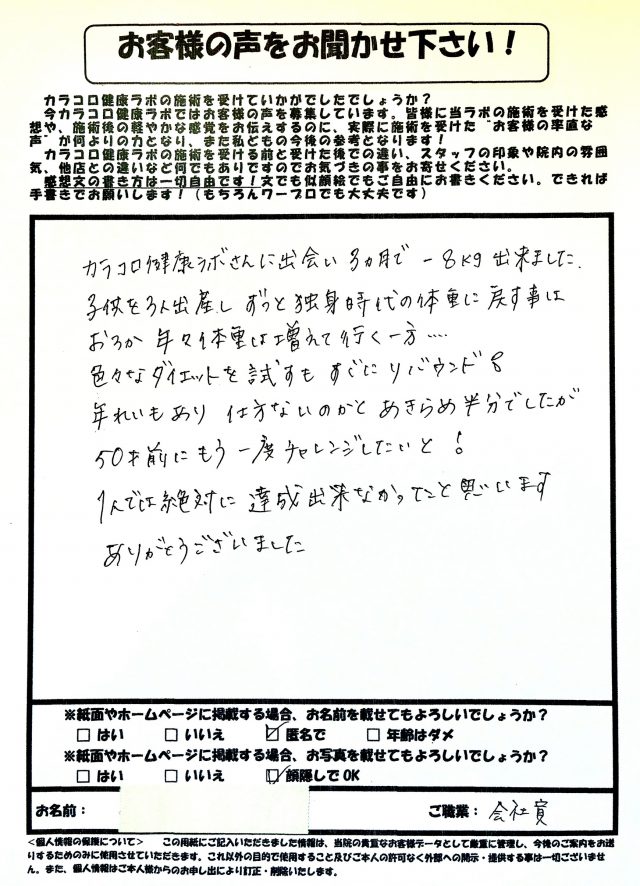 お客様の声をお聞かせ下さい！
カラコロ健康ラボの施術を受けていかがでしたでしょうか？
今カラコロ健康ラボではお客様の声を募集しています。皆様に当ラボの施術を受けた感
想や、施術後の軽やかな感覚をお伝えするのに、実際に施術を受けた“お客様の率直な
声”が何よりの力となり、また私どもの今後の参考となります！
カラコロ健康ラボの施術を受ける前と受けた後での違い、スタッフの印象や院内の雰囲
気、他店との違いなど何でもありですのでお気づきの事をお寄せください。
感想文の書き方は一切自由です！文でも似顔絵でもご自由にお書きください。できれば
手書きでお願いします！（もちろんワープロでも大丈夫です）
カラコロ健康ラボさんに出会い 3ヵ月で －8kg 出来ました.
子供を3人出産し ずっと独身時代の体重に戻す事は
おろか 年々体重は増えて行く一方....
色々なダイエットを試すも すぐに リバウンド
年れいもあり 仕方ないのかと あきらめ半分でしたが
50才前に もう一度チャレンジしたいと！
1人では絶対に 達成出来なかったこと思います
ありがとうございました
※紙面やホームページに掲載する場合、お名前を載せてもよろしいでしょうか？
□ はい □ いいえ ☑ 匿名で □ 年齢はダメ
※紙面やホームページに掲載する場合、お写真を載せてもよろしいでしょうか？
□ はい □ いいえ ☑ 顔隠しでOK
お名前： ご職業： 会社員
＜個人情報の保護について＞ この用紙にご記入いただきました情報は、当院の貴重なお客様データとして厳重に管理し、今後のご案内をお送
りするためのみに使用させていただきます。これ以外の目的で使用すること及びご本人の許可なく外部への開示・提供する事は一切ございませ
ん。また、個人情報はご本人様からのお申し出により訂正・削除いたします。